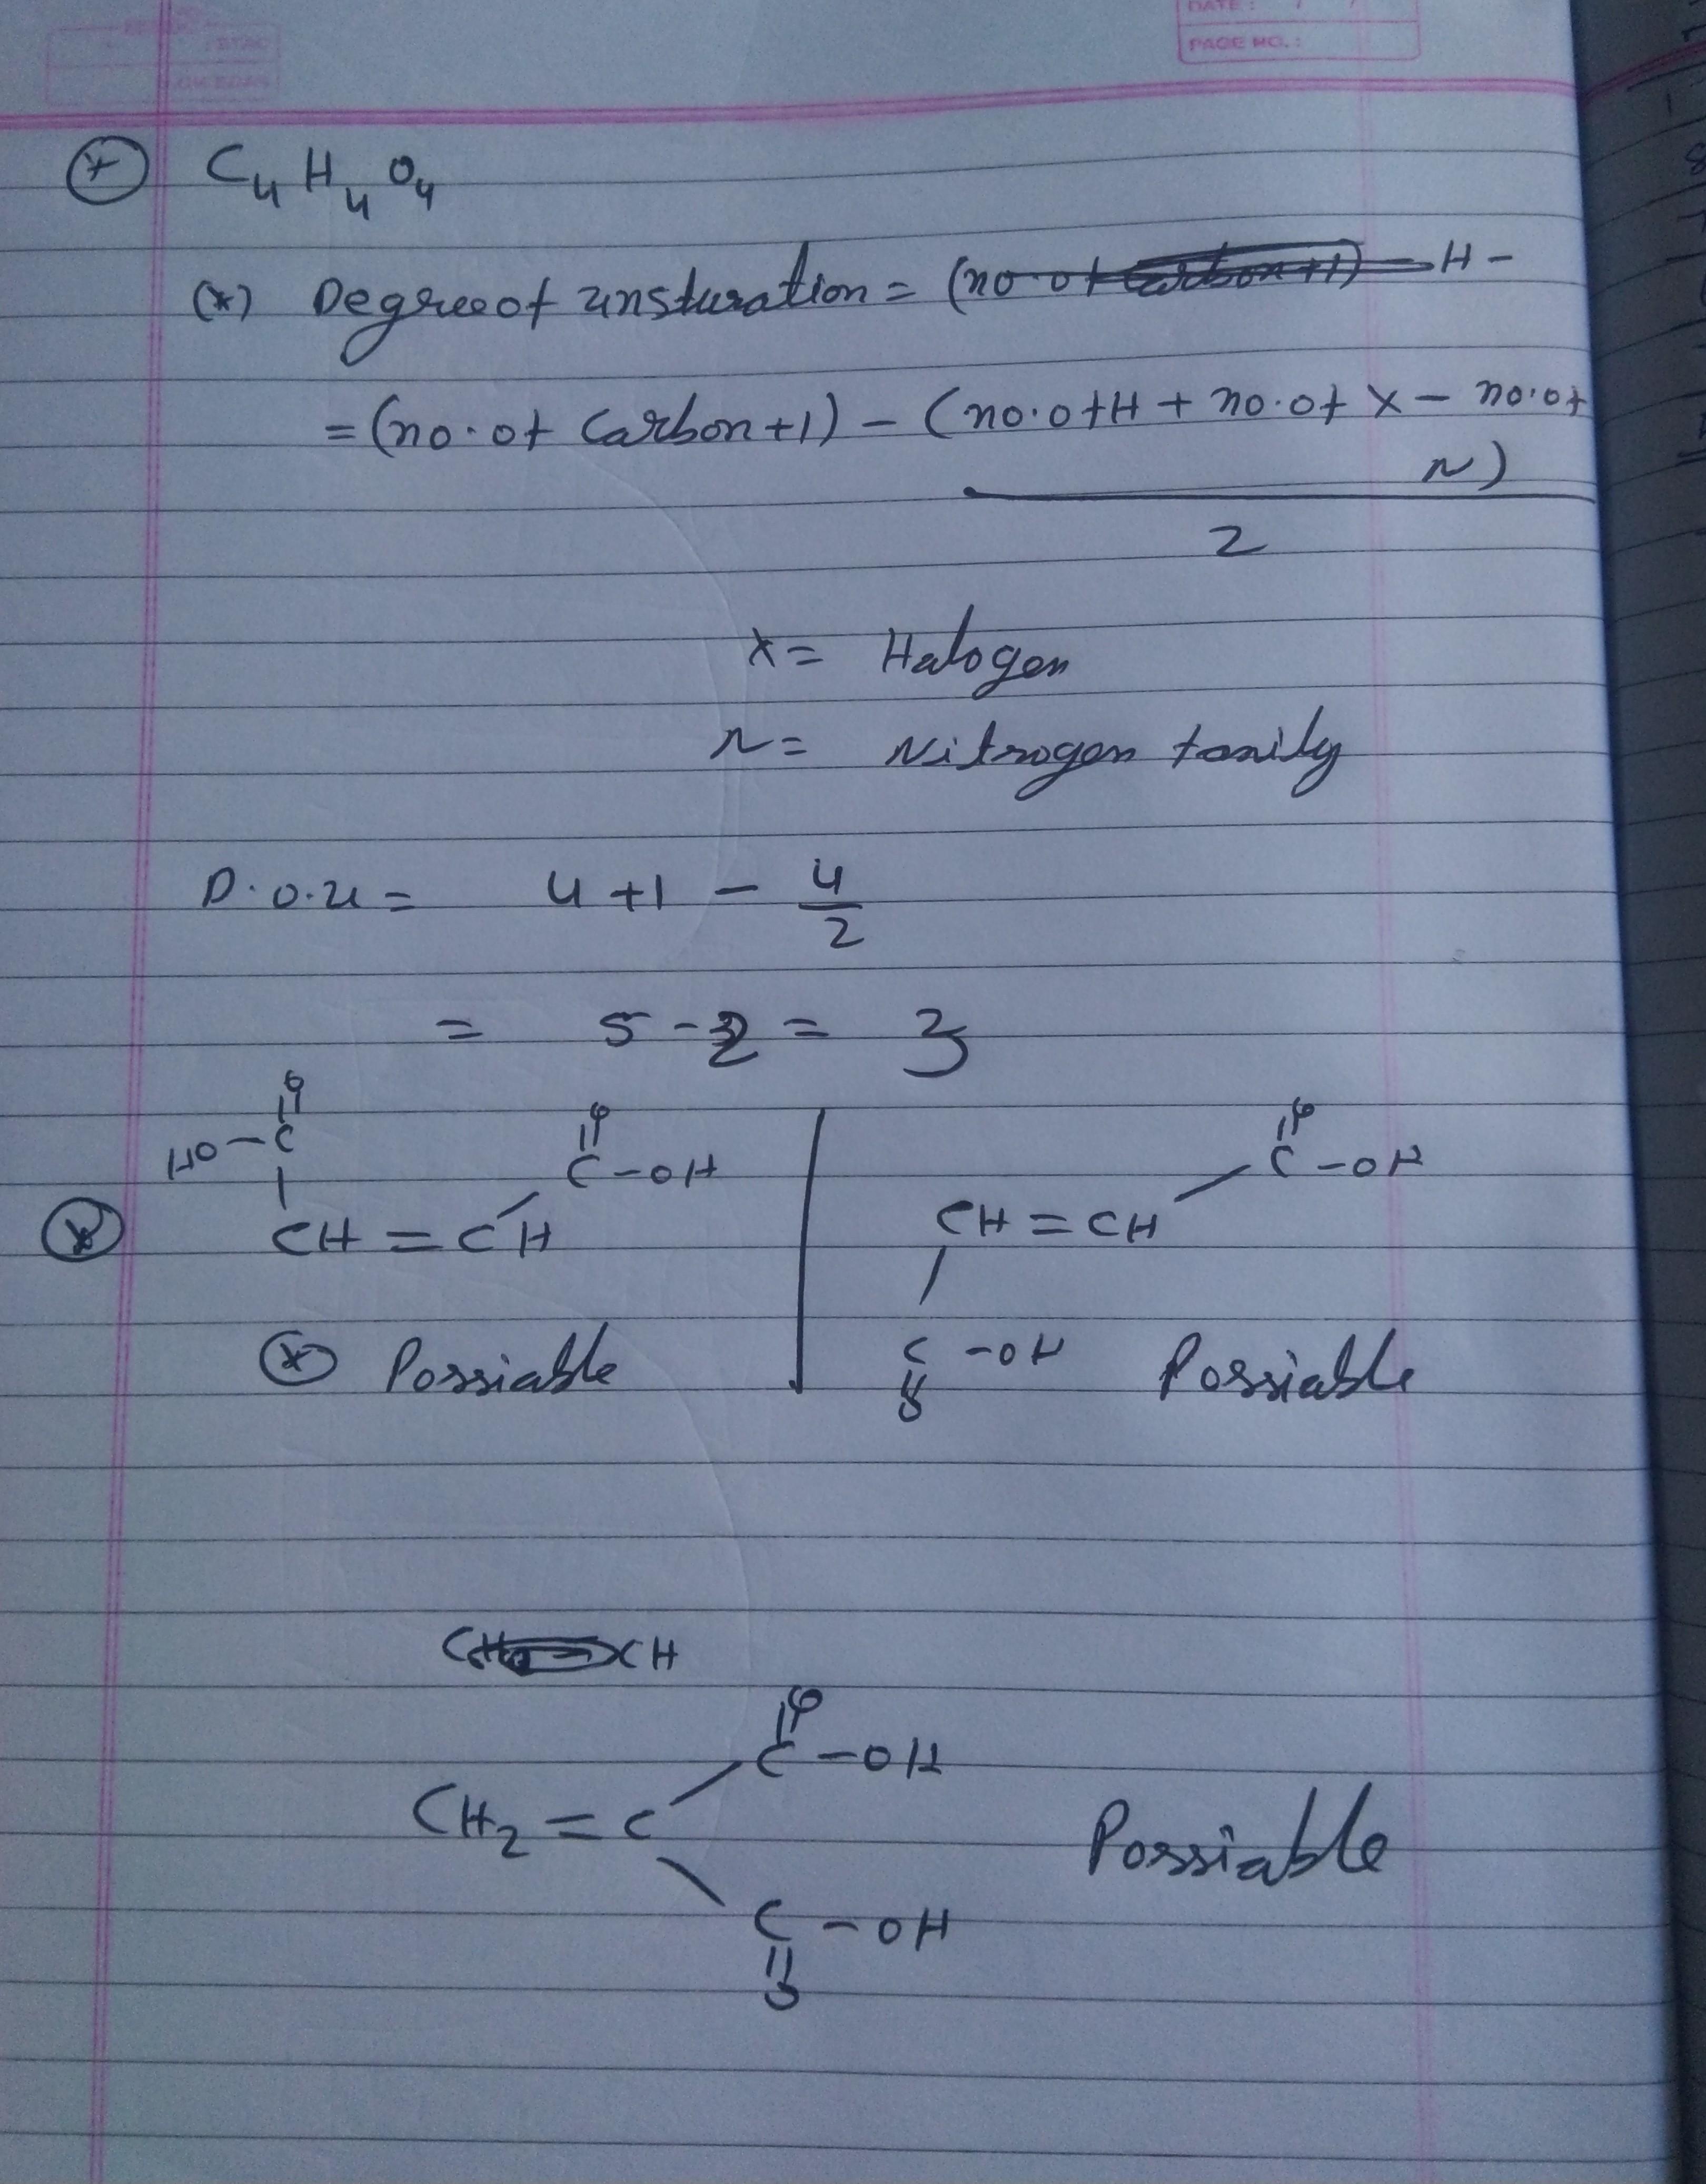 DATE: / /
PAGE NO.:
C4H4O4
(*) Degree of unsturation = (no. of carbon+1) - H -
= (no. of Carbon+1) - (no. of H + no. of X - no. of
N)
2
X = Halogen
N = Nitrogen family
D.O.U = 4+1 - 4
2
= 5 - 2 = 3
O O O
HO-C C-OH C-OH
CH=CH CH=CH
Possiable C-OH Possiable
O
CH
O
C-OH
CH2=C Possiable
C-OH
O